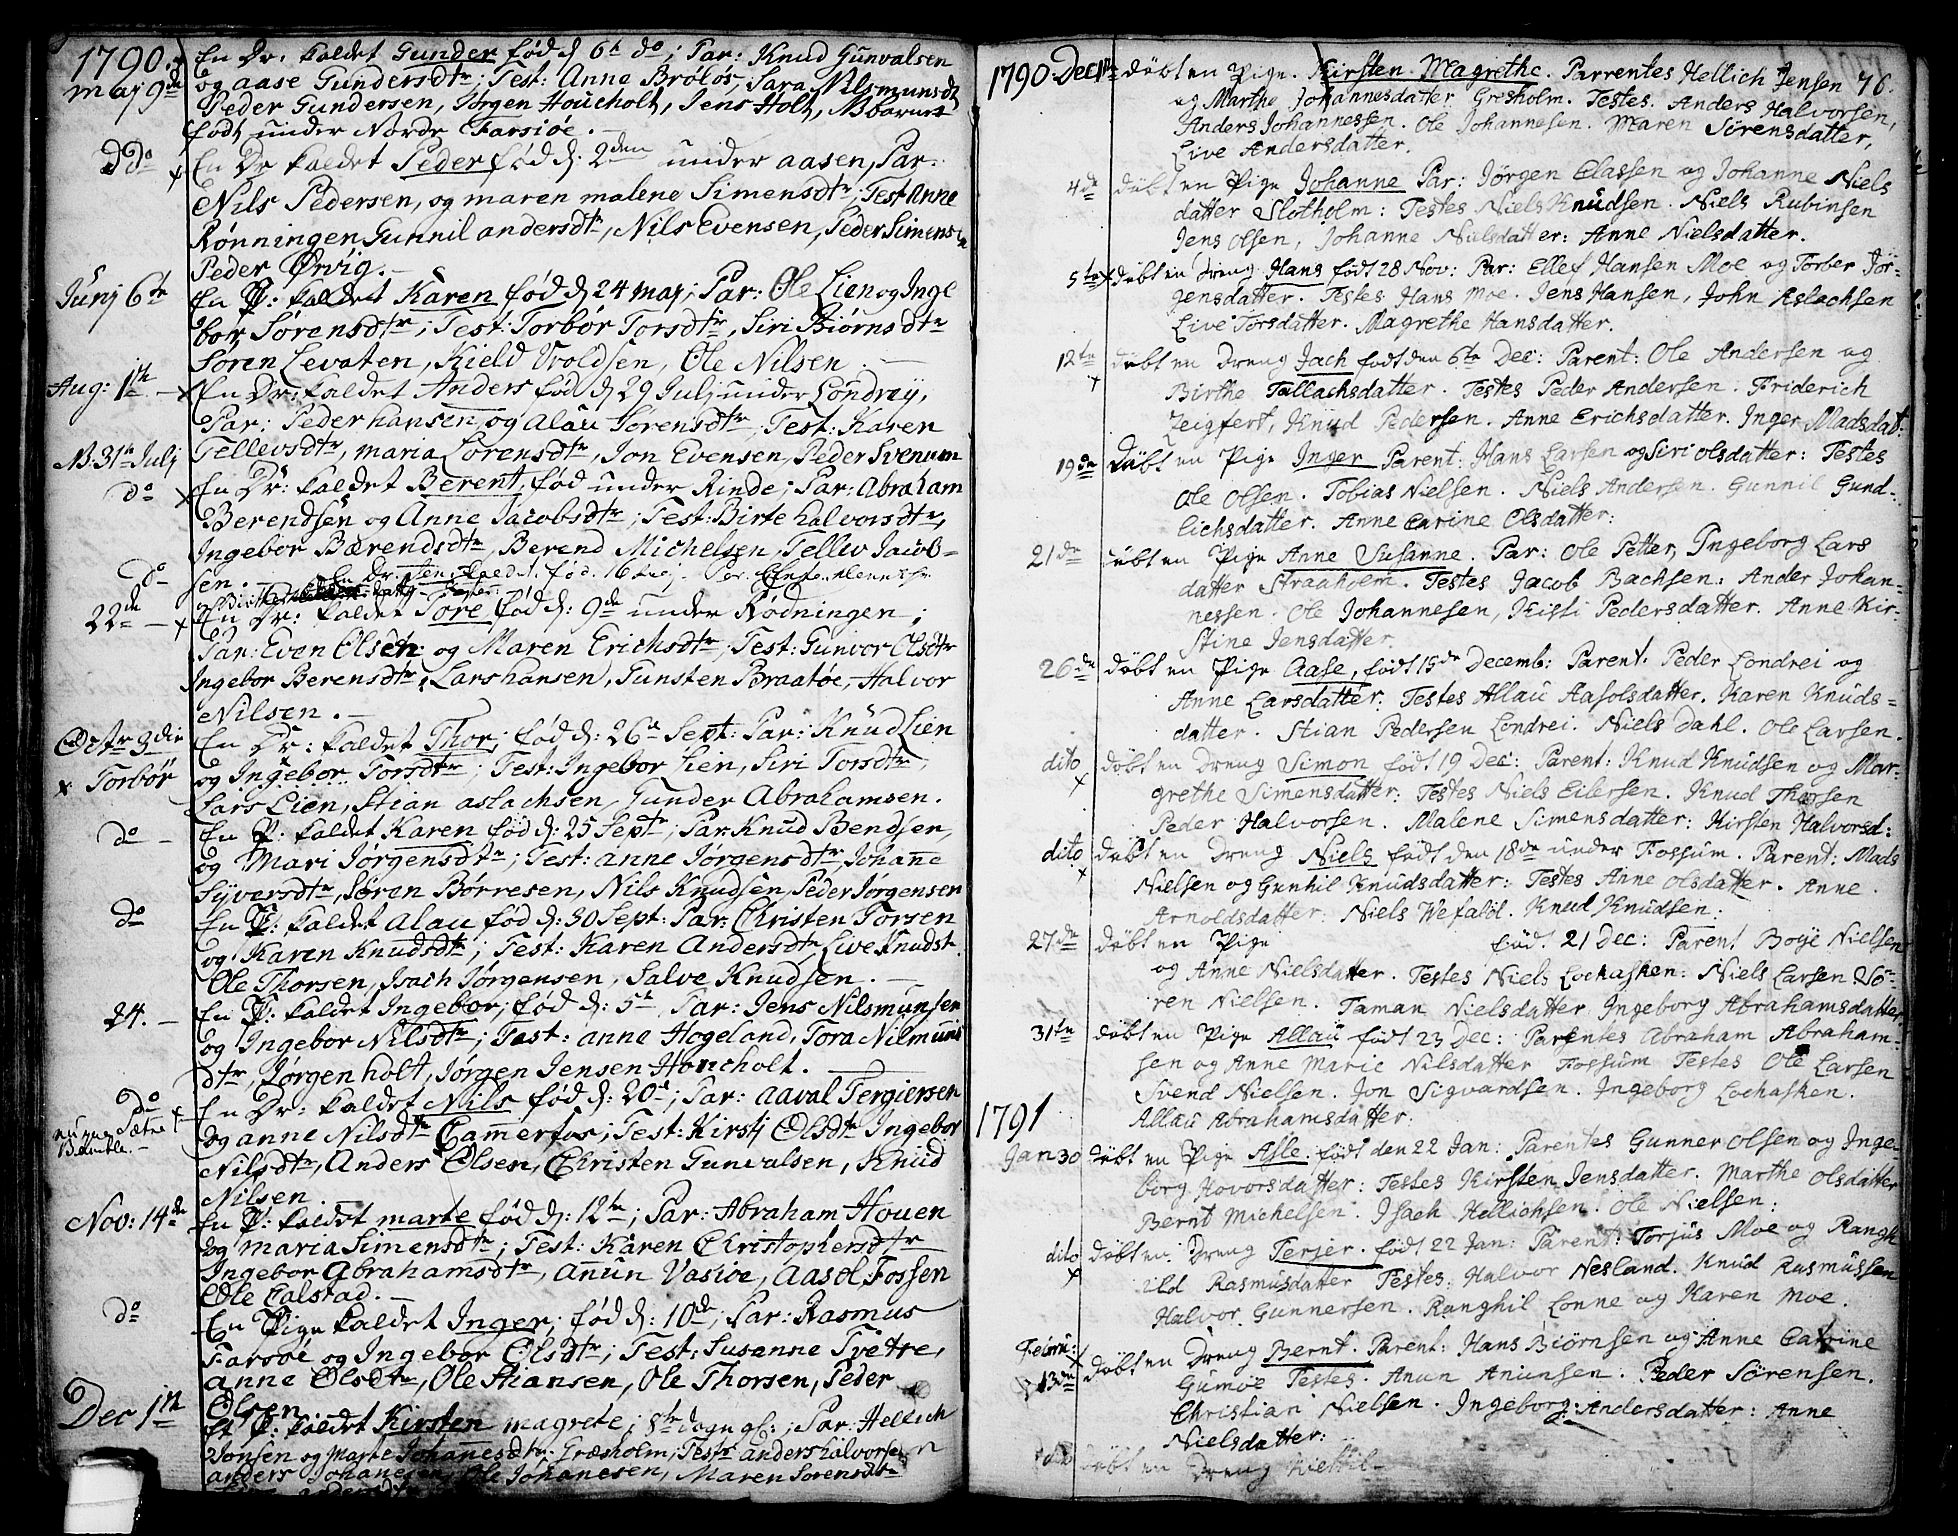 1790.
maj 9de
En Dr: kaldet Gunder fød d 6t do; Par: Knud Gunvalsen
og aase Gundersdtr; Test: Anne Brøløs, Sara Nilsmunsdt
Peder Gundersen, Jørgen Houcholt, Jens Holt, NB barnet
født under Nordr Farsiøe.
Ddo
En Dr kaldet Peder fød d: 2den under aasen, Par:
Nils Pedersen, og maren malene Simensdtr; Test Anne
Rønningen, Gunnil andersdtr, Nils Evensen, Peder Simens
Peder Ørvig.
Junj 6te
En P: kaldet Karen fød d 24 maj; Par: Ole Lien og Inge
bor Sørensdtr; Test: Torbør Torsdtr, Siri Biørnsdtr
Søren Levaten, Kield Vroldsen, Ole Nilsen.
Aug: 1te
En Dr: kaldet Anders fød d 29 Julj under Londrøy,
Par: Peder hansen, og Alau Sørensdtr, Test: Karen
NB. 31te Julj
Tellevsdtr, maria Lorensdtr, Jon Evensen, Peder Svenum
do
En Dr: kaldet Berent, fød under Rinde; Par: Abraham
Berendsen og Anne Jacobsdtr; Test: Birte halvorsdtr,
Ingebor Bærendsdtr, Berend Michelsen, Tellev Jacob-
do
sen.
En Dr: fød. 16
22de
En Dr: kaldet Tore fød d: 9de under Rødningen;
Par: Even Olsen og Maren Erichsdtr, Test: Gunvor Olsdtr
Ingebor Berensdtr, Lars hansen, Tunsten Braatøe, Halvor
Nilsen.
Octr 3die
En Dr: kaldet Thor, fød d: 26d Sept: Par: Knud Lien
Torbør
og Ingebor Torsdtr; Test: Ingebor Lien, Siri Torsdtr,
Lars Lien, Stian aslachsen, Gunder Abrahamsen.
do
En P: kaldet Karen fød d: 25 Septr; Par: Knud Bendsen,
og Mari Jørgensdtr; Test: anne Jørgensdtr, Johane
Syversdtr, Søren Børresen, Nils Knudsen, Peder Jørgensen
do
En P: kaldet Alau fød d: 30 Sept: Par: Christen Torsen
og Karen Knudsdtr; Test: Karen Andersdtr, Live Knudst.
Ole Thorsen, Isach Jørgensen, Salve Knudsen.
24.
En P: kaldet Ingebor, fød d: 5te Par: Jens Nilsmunsen
og Ingebor Nilsdtr; Test: anne Hogeland, Tora Nilmuns
dtr, Jørgen holt, Jørgen Jensen Houcholt.
Do
En Dr: kaldet Nils fød d: 20d; Par: aaval Tergiersen
og anne Nilsdtr Camerfos; Test: Kirstj Olsdtr Ingebor
Nilsdtr, Anders Olsen, Christen Gunvalsen, Knud
Nilsen.
Nov: 14de
En P: kaldet marte fød d: 12te; Par: Abraham Houen
og maria Simensdtr; Test: Karen Christophersdtr
Ingebor Abrahamsdtr, anun Vasioe, Aasol Fossen
Ole Calstad.
do
En Pige kaldet Inger, fød d: 10de; Par: Rasmus
Farsøe og Ingebor Olsdtr; Test: Susanne Tvetre,
anne Olsdtr, Ole Hansen, Ole Thorsen, Peder
Olsen
Dec 1te
Et P: kaldet Kirsten magrete; 8te dagn gl:; Par: Hellich
Jonsen og Marte Johanesdtr Græsholm; Test: anders halvorsen
anders Johanesen, Ole Johanesen, Maren Sørensdtr
1790 Dec 1te døbt en Pige. Kirsten Magrethe. Parrentes Hellich Jensen 76.
og Marthe Johannesdatter Gresholm. Testes. Anders Halvorsen,
Anders Johannessen. Ole Johannesen. Maren Sørensdatter,
Live Andersdatter.
4de døbt en Pige Johanne Par: Jørgen Classen og Johanne Niels
datter Slotholm: Testes Niels Knudsen. Niels Rubinsen
Jens Olsen, Johanne Nielsdatter: Anne Nielsdatter.
5te døbt en Dreng Hans født 28 Nov: Par: Ellef Hansen Moe og Torber Jør-
gensdatter. Testes Hans Moe. Jens Hansen, John Aslachsen
Live Torsdatter. Magrethe Hansdatter.
12te døbt en Dreng Jach født den 6te Dec: Parent: Ole Andersen og
Birthe Tallachsdatter. Testes Peder Andersen. Friderich
Zeigfert, Knud Pedersen. Anne Erichsdatter. Inger Madsdat:
19de døbt en Pige Inger Parent: Hans Larsen og Siri Olsdatter: Testes
Ole Olsen. Tobias Nielsen. Niels Andersen. Gunnil Gund-
lichsdatter. Anne Carine Olsdatter:
21de døbt en Pige Anne Susanne. Par: Ole Petter, Ingeborg Lars
datter Straaholm. Testes Jacob Bachsen: Ander Johan-
nessen. Ole Johannesen, Kisti Pedersdatter. Anne Kir-
stine Jensdatter.
26de døbt en Pige Aase, født 15de Decemb: Parent. Peder Londrei og
Anne Larsdatter: Testes Allau Aasolsdatter. Karen Knuds-
datter. Stian Pedersen Londrei. Niels Dahl. Ole Larsen.
dito døbt en Dreng Simon født 19 Dec: Parent: Knud Knudsen og Mar-
grethe Simensdatter: Testes Niels Eilersen. Knud Thorsen
Peder Halvorsen. Malene Simensdatter: Kirsten Halvorsd:
dito døbt en Dreng Niels født den 18de under Fossum. Parent: Mads
Nielsen og Gunhil Knudsdatter: Testes Anne Olsdatter. Anne
Arnoldsdatter: Niels Wefaløl. Knud Knudsen:
27de døbt en Pige født 21 Dec: Parent Boye Nielsen
og Anne Nielsdatter. Testes Niels Lochasken: Niels Larsen Sö-
ren Nielsen. Taman Nielsdatter Ingeborg Abrahamsdatter
31te døbt en Pige Allau født 23 Dec: Parentes Abraham Abraham-
sen og Anne Marie Nilsdatter Fossum Testes Ole Larsen
Svend Nielsen. Jon Sigvardsen. Ingeborg Lochasken.
Allau Abrahamsdatter:
1791
Jan 30 døbt en Pige Asle. født den 22 Jan: Parentes Gunner Olsen og Inge-
borg Hovorsdatter: Testes Kirsten Jensdatter. Marthe Olsdatter
Bernt Michelsen. Isach Hellichsen. Ole Nielsen:
dito døbt en Dreng Terjer. født 22 Jan: Parent: Torjus Moe og Rangh
ild Rasmusdatter Testes: Halvor Nesland. Knud Rasmussen
Halvor Gunnersen. Ranghil Lonne og Karen Moe.
Februr:
13de døbt en Dreng Bernt. Parent: Hans Biørnsen og Anne Catrine
Gumøe Testes. Anun Anunsen. Peder Sørensen.
Christian Nielsen. Ingeborg Andersdatter: Anne
Nielsdatter:
døbt en Dreng Kiettil